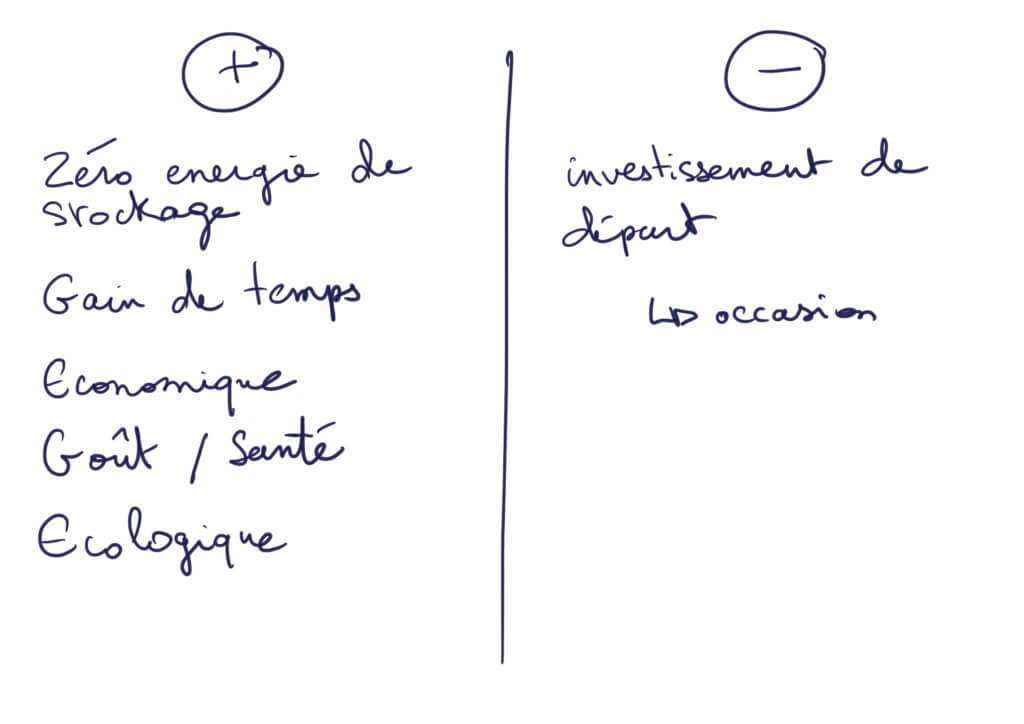 +
Zéro energie de
stockage
Gain de temps
Economique
Goût / Santé
Ecologique
−
investissement de
départ
↳ occasion